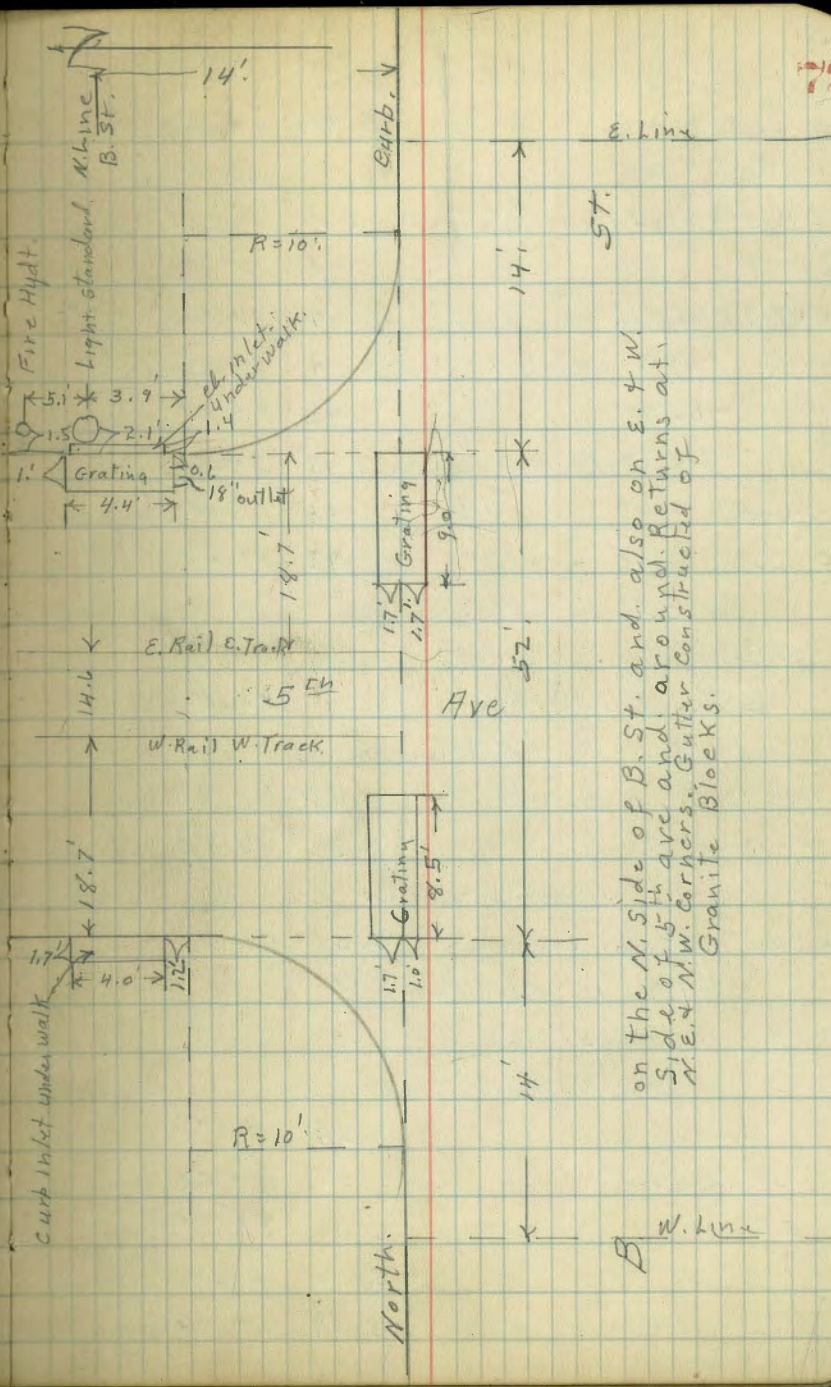 14'.
N. Line
B. St.
Light standard
Fire Hydt.
Curb.
E. Line
St.
R=10'.
14'
5.1'
3.9'
cb. inlet.
Under walk.
1.5
2.1'
1.4
1.'
Grating
0.6
18" outlet
4.4'
18.7'
Grating
9.0'
1.7'
1.7'
E. Rail E. Track
14.6
5th
Ave
52'
W. Rail W. Track
18.7'
Grating
8.5'
1.7'
1.0'
1.7'
4.0'
1.2'
Curb Inlet under walk
R=10'.
14'
North.
B
W. Line
on the N. Side of B. St. and also on E. & W.
Side of 5th ave and around Returns at
N.E. & N.W. Corners. Gutter Constructed of
Granite Blocks.